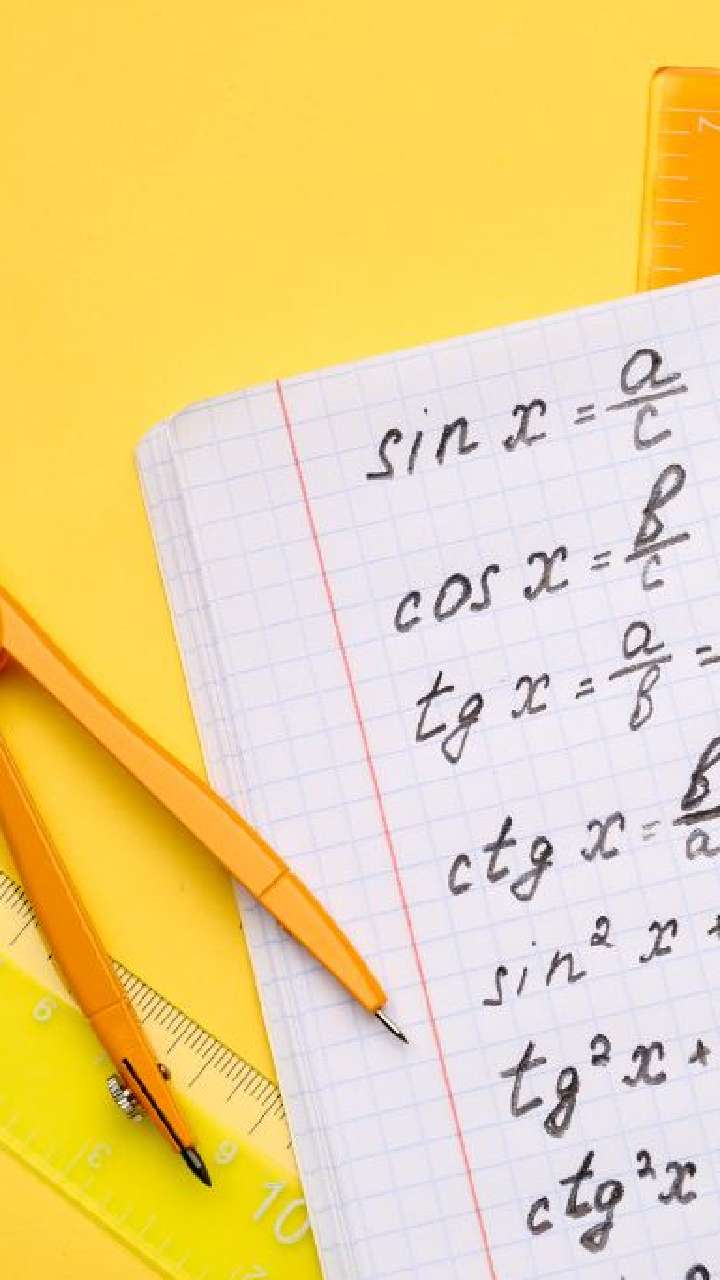 sin x = a/c
cos x = b/c
tg x = a/b =
ctg x = b/a
sin² x +
tg² x +
ctg² x
6
3
9
10